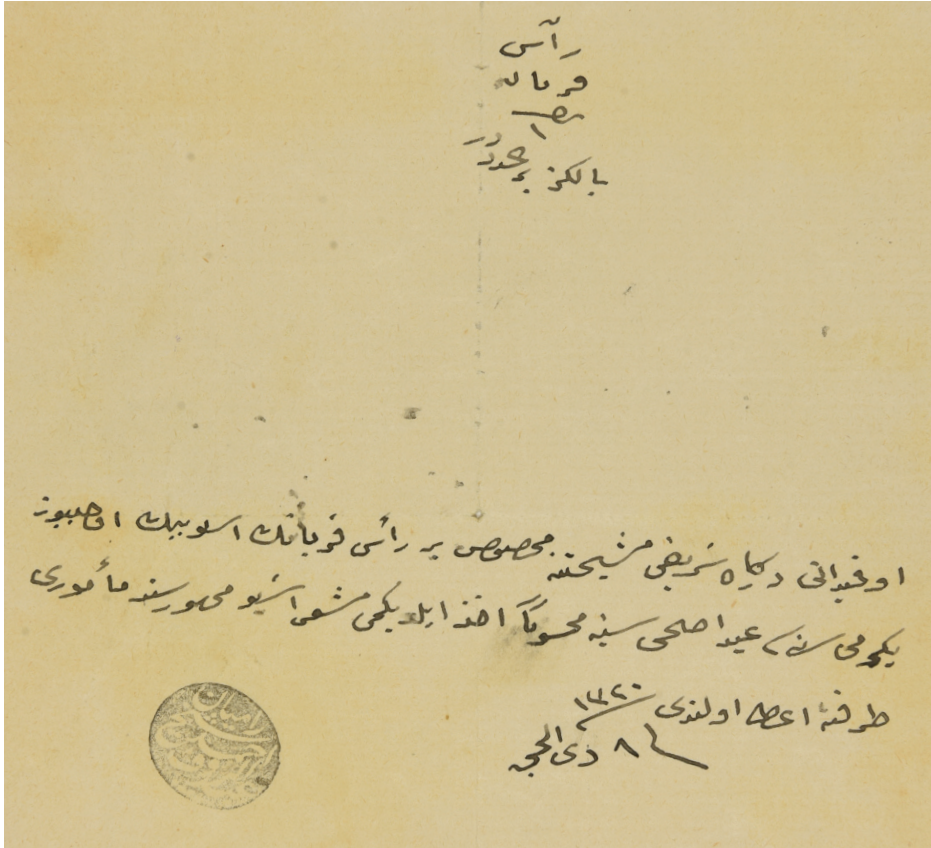 رأس
قربان
١
يالكز بر عدددر
درگاه شريفى مشيختنه مخصوص بر رأس قربانك اشبو بيك اوچيوز
يكرمى سنه سى عيد اضحى سنه محسوباً اخذ ايلديكمى مشعر اشبو ممهور سند مأمورى
طرفنه اعطا اولندى
٨ ذى الحجه ١٣٢٠